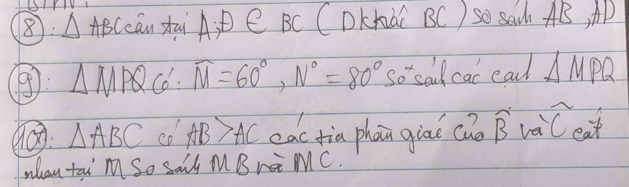 ⑧: Δ ABC cân tại A; D ∈ BC (D khác BC) so sánh AB, AD
⑨: Δ MPQ có: M̂ = 60°, N° = 80° so sánh các cạnh Δ MPQ
⑩: Δ ABC có AB > AC các tia phân giác của B̂ và Ĉ cắt
nhau tại M so sánh MB và MC.